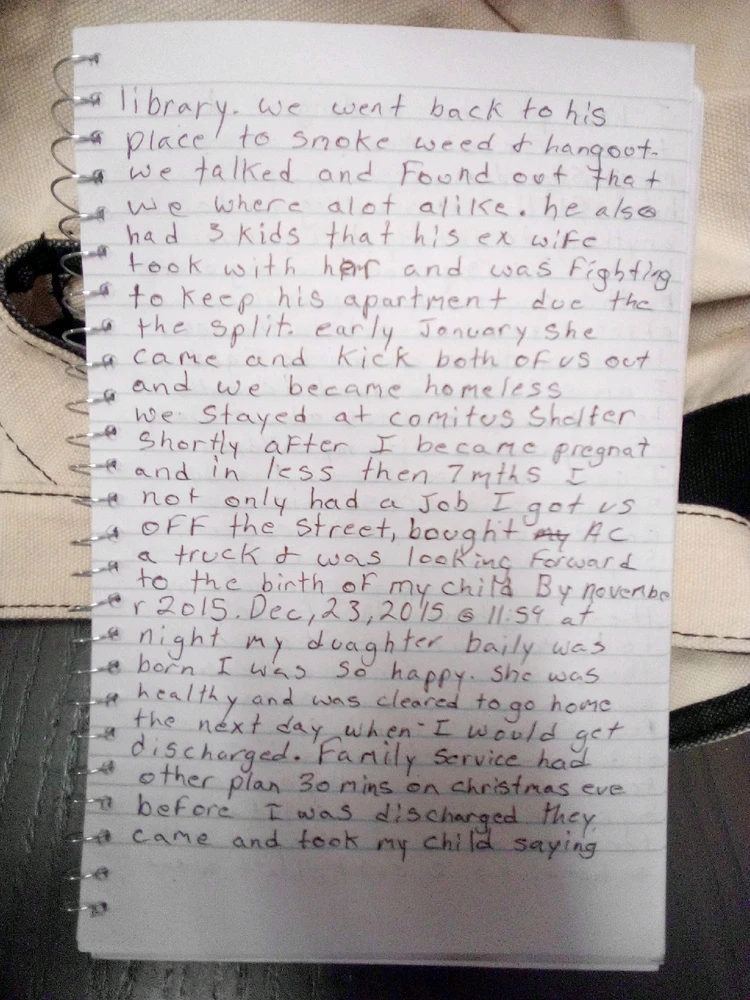 library. we went back to his
place to smoke weed & hangout.
we talked and Found out that
we where alot alike. he also
had 3 kids that his ex wife
took with her and was fighting
to keep his apartment due the
the split. early January she
came and kick both of us out
and we became homeless
we stayed at comitus Shelter
Shortly after I became pregnat
and in less then 7 mths I
not only had a Job I got us
OFF the street, bought my AC
a truck & was looking forward
to the birth of my child By novembe
r 2015. Dec, 23, 2015 @ 11:59 at
night my duaghter baily was
born I was so happy. she was
healthy and was cleared to go home
the next day when I would get
discharged. Family service had
other plan 30 mins on christmas eve
before I was discharged they
came and took my child saying